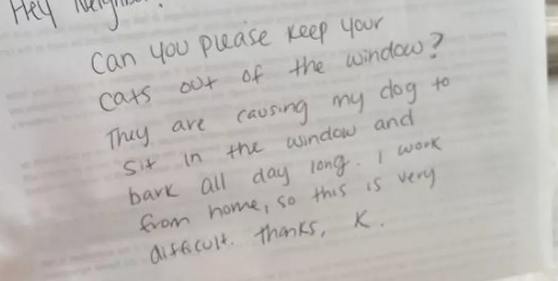 Hey Neighbor!
Can you please keep your
cats out of the window?
They are causing my dog to
sit in the window and
bark all day long. I work
from home, so this is very
difficult. Thanks, K.